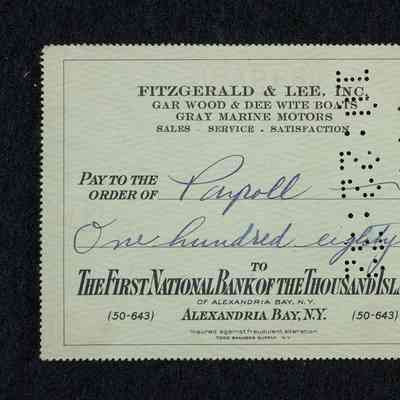 FITZGERALD & LEE, INC.
GAR WOOD & DEE WITE BOATS
GRAY MARINE MOTORS
SALES - SERVICE - SATISFACTION
PAY TO THE
ORDER OF Payroll
One hundred eighty
TO
THE FIRST NATIONAL BANK OF THE THOUSAND ISLA
OF ALEXANDRIA BAY, N.Y.
(50-643) ALEXANDRIA BAY, N.Y. (50-643)
Insured against fraudulent alteration
TODD BANKERS SUPPLY N.Y.